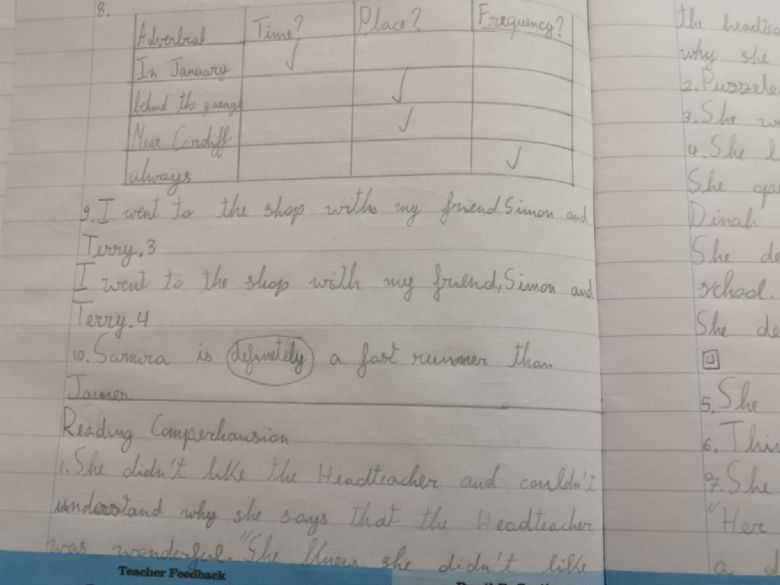 8.
Adverbial Time? Place? Frequency?
In January ✓
behind the garage ✓
Near Cardiff ✓
always ✓
9. I went to the shop with my friend Simon and
Terry. 3
I went to the shop with my friend, Simon and
Terry. 4
10. Samira is definetely a fast runner than
Reading Comperhansion
1. She didn't like the Headteacher and couldn't
understand why she says that the Headteacher
was wonderful. "She knew she didn't like
Teacher Feedback
the
why she
2.
3. She
4. She
She
Dinah
She de
school.
She de
5. She
6. This
7. She
"Her
a d